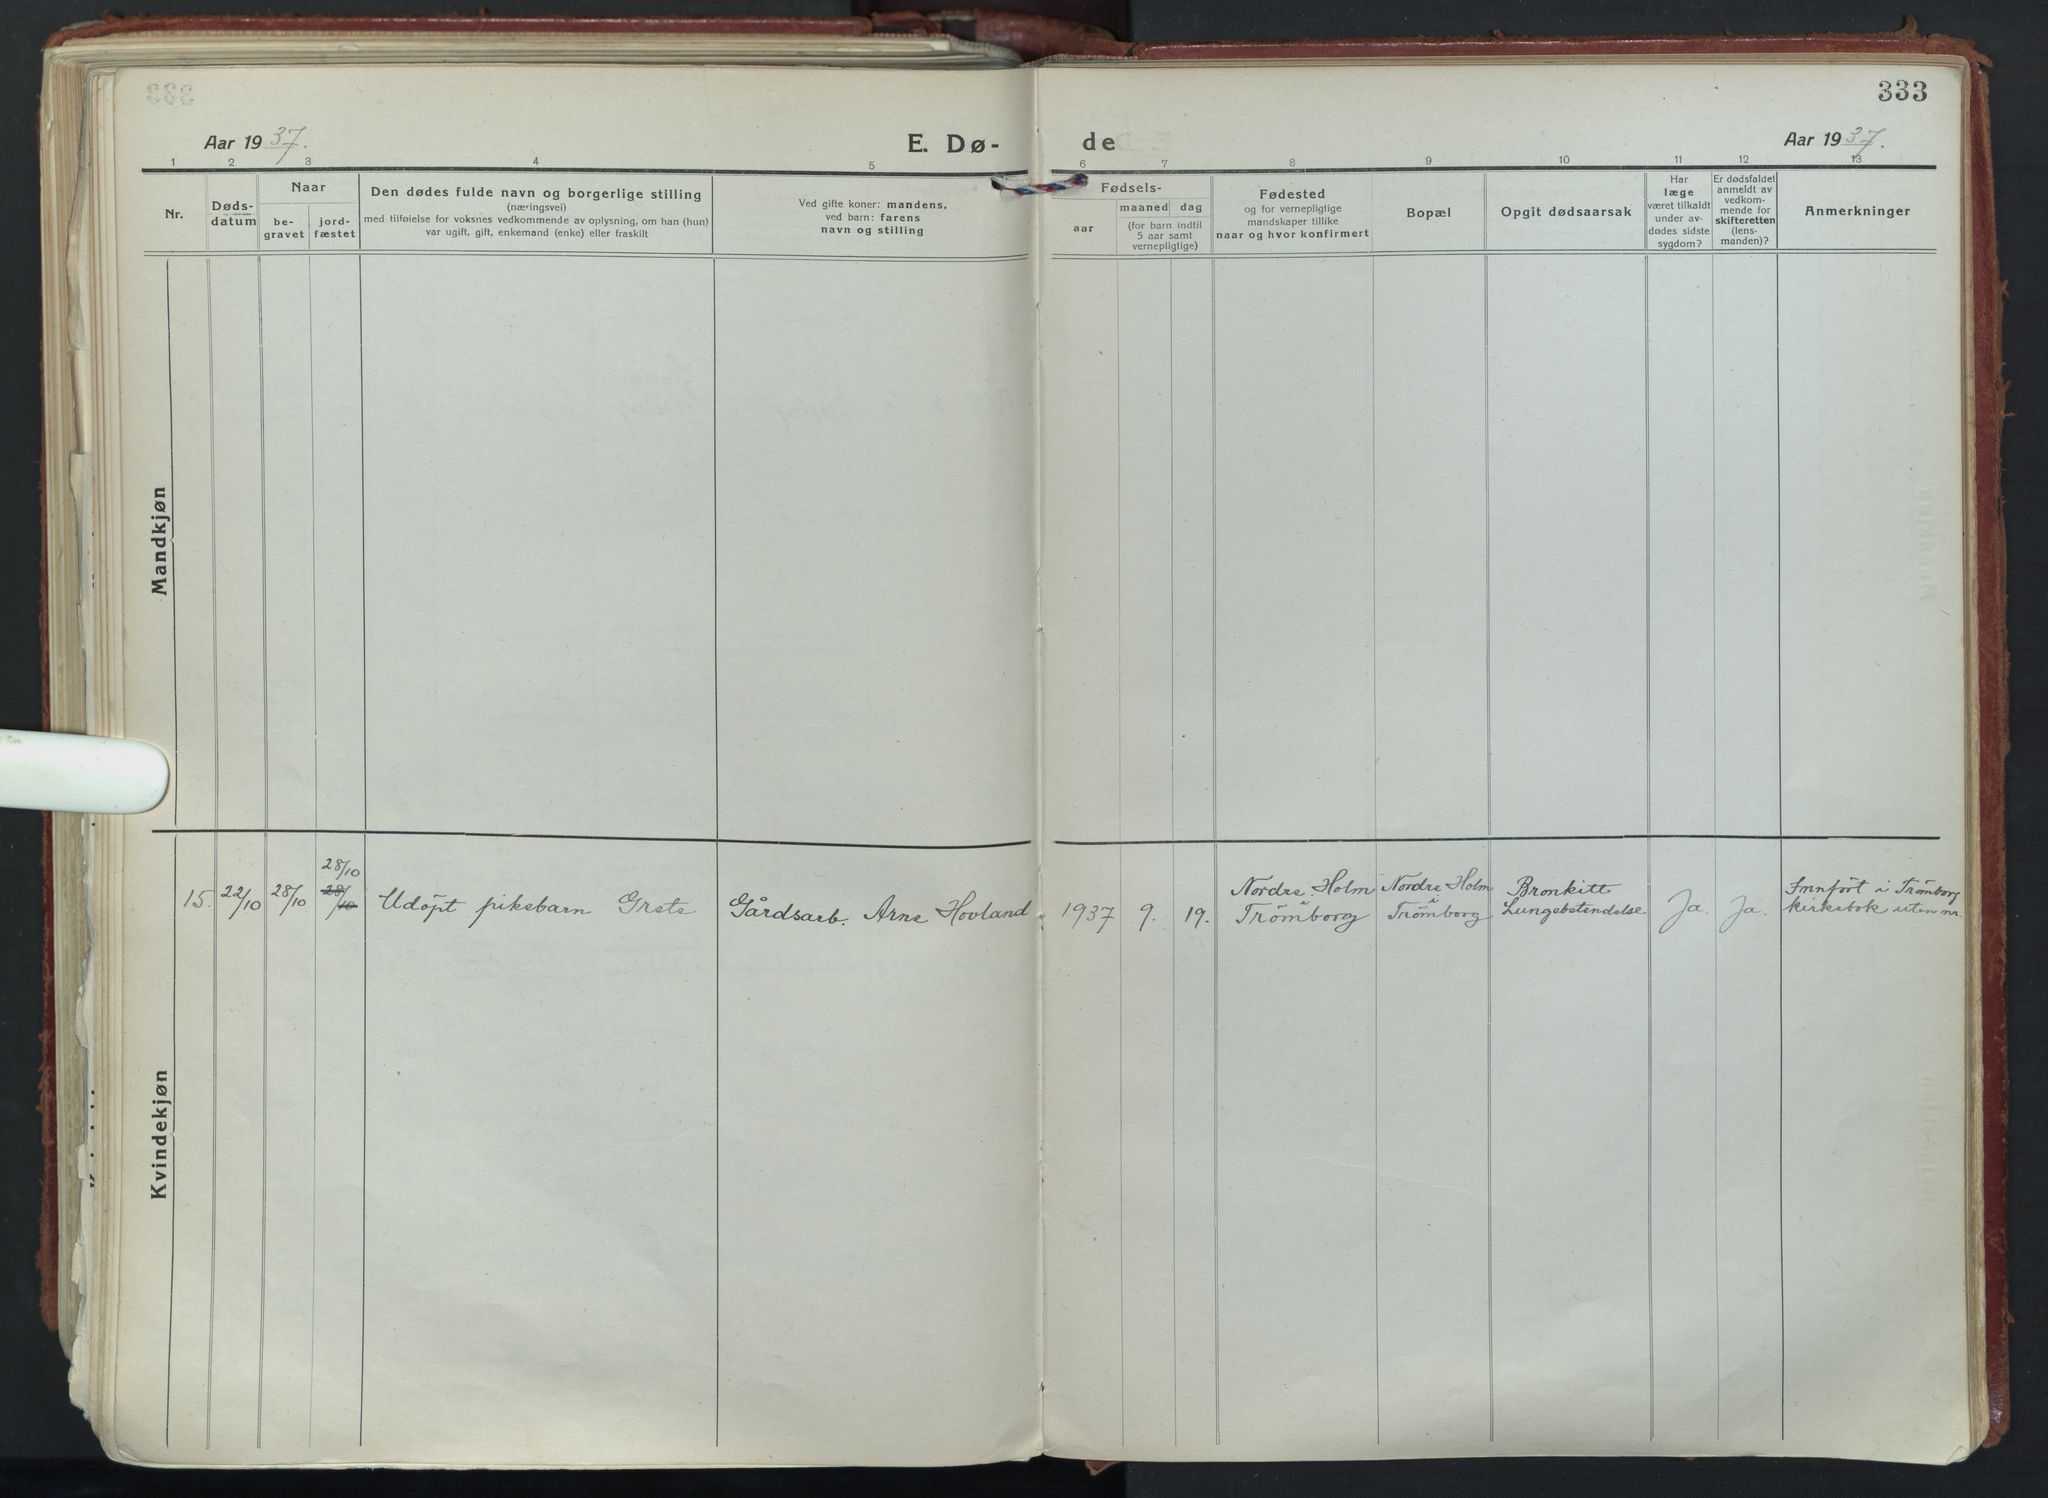 333
Aar 1937.
E. Dø-
de
Aar 1937.
1 2 3 4 5 6 7 8 9 10 11 12 13
Nr.
Døds-
datum
Naar
be-
gravet
jord-
fæstet
Den dødes fulde navn og borgerlige stilling
(næringsvei)
med tilføielse for voksnes vedkommende av oplysning, om han (hun)
var ugift, gift, enkemand (enke) eller fraskilt
Ved gifte koner: mandens,
ved barn: farens
navn og stilling
Fødsels-
aar
maaned dag
(for barn indtil
5 aar samt
vernepligtige)
Fødested
og for vernepligtige
mandskaper tillike
naar og hvor konfirmert
Bopæl
Opgit dødsaarsak
Har
læge
været tilkaldt
under av-
dødes sidste
sygdom?
Er dødsfaldet
anmeldt av
vedkom-
mende for
skifteretten
(lens-
manden)?
Anmerkninger
Mandkjøn
Kvindekjøn
15.
22/10
28/10
28/10
28/10
Udöpt pikebarn Grete
Gårdsarb. Arne Hovland
1937
9.
19.
Nordre Holm
i
Trömborg
Nordre Holm
i
Trömborg
Bronkitt
Lungebetendelse
Ja.
Ja.
Innfört i Trömborg
kirkebok uten nr.